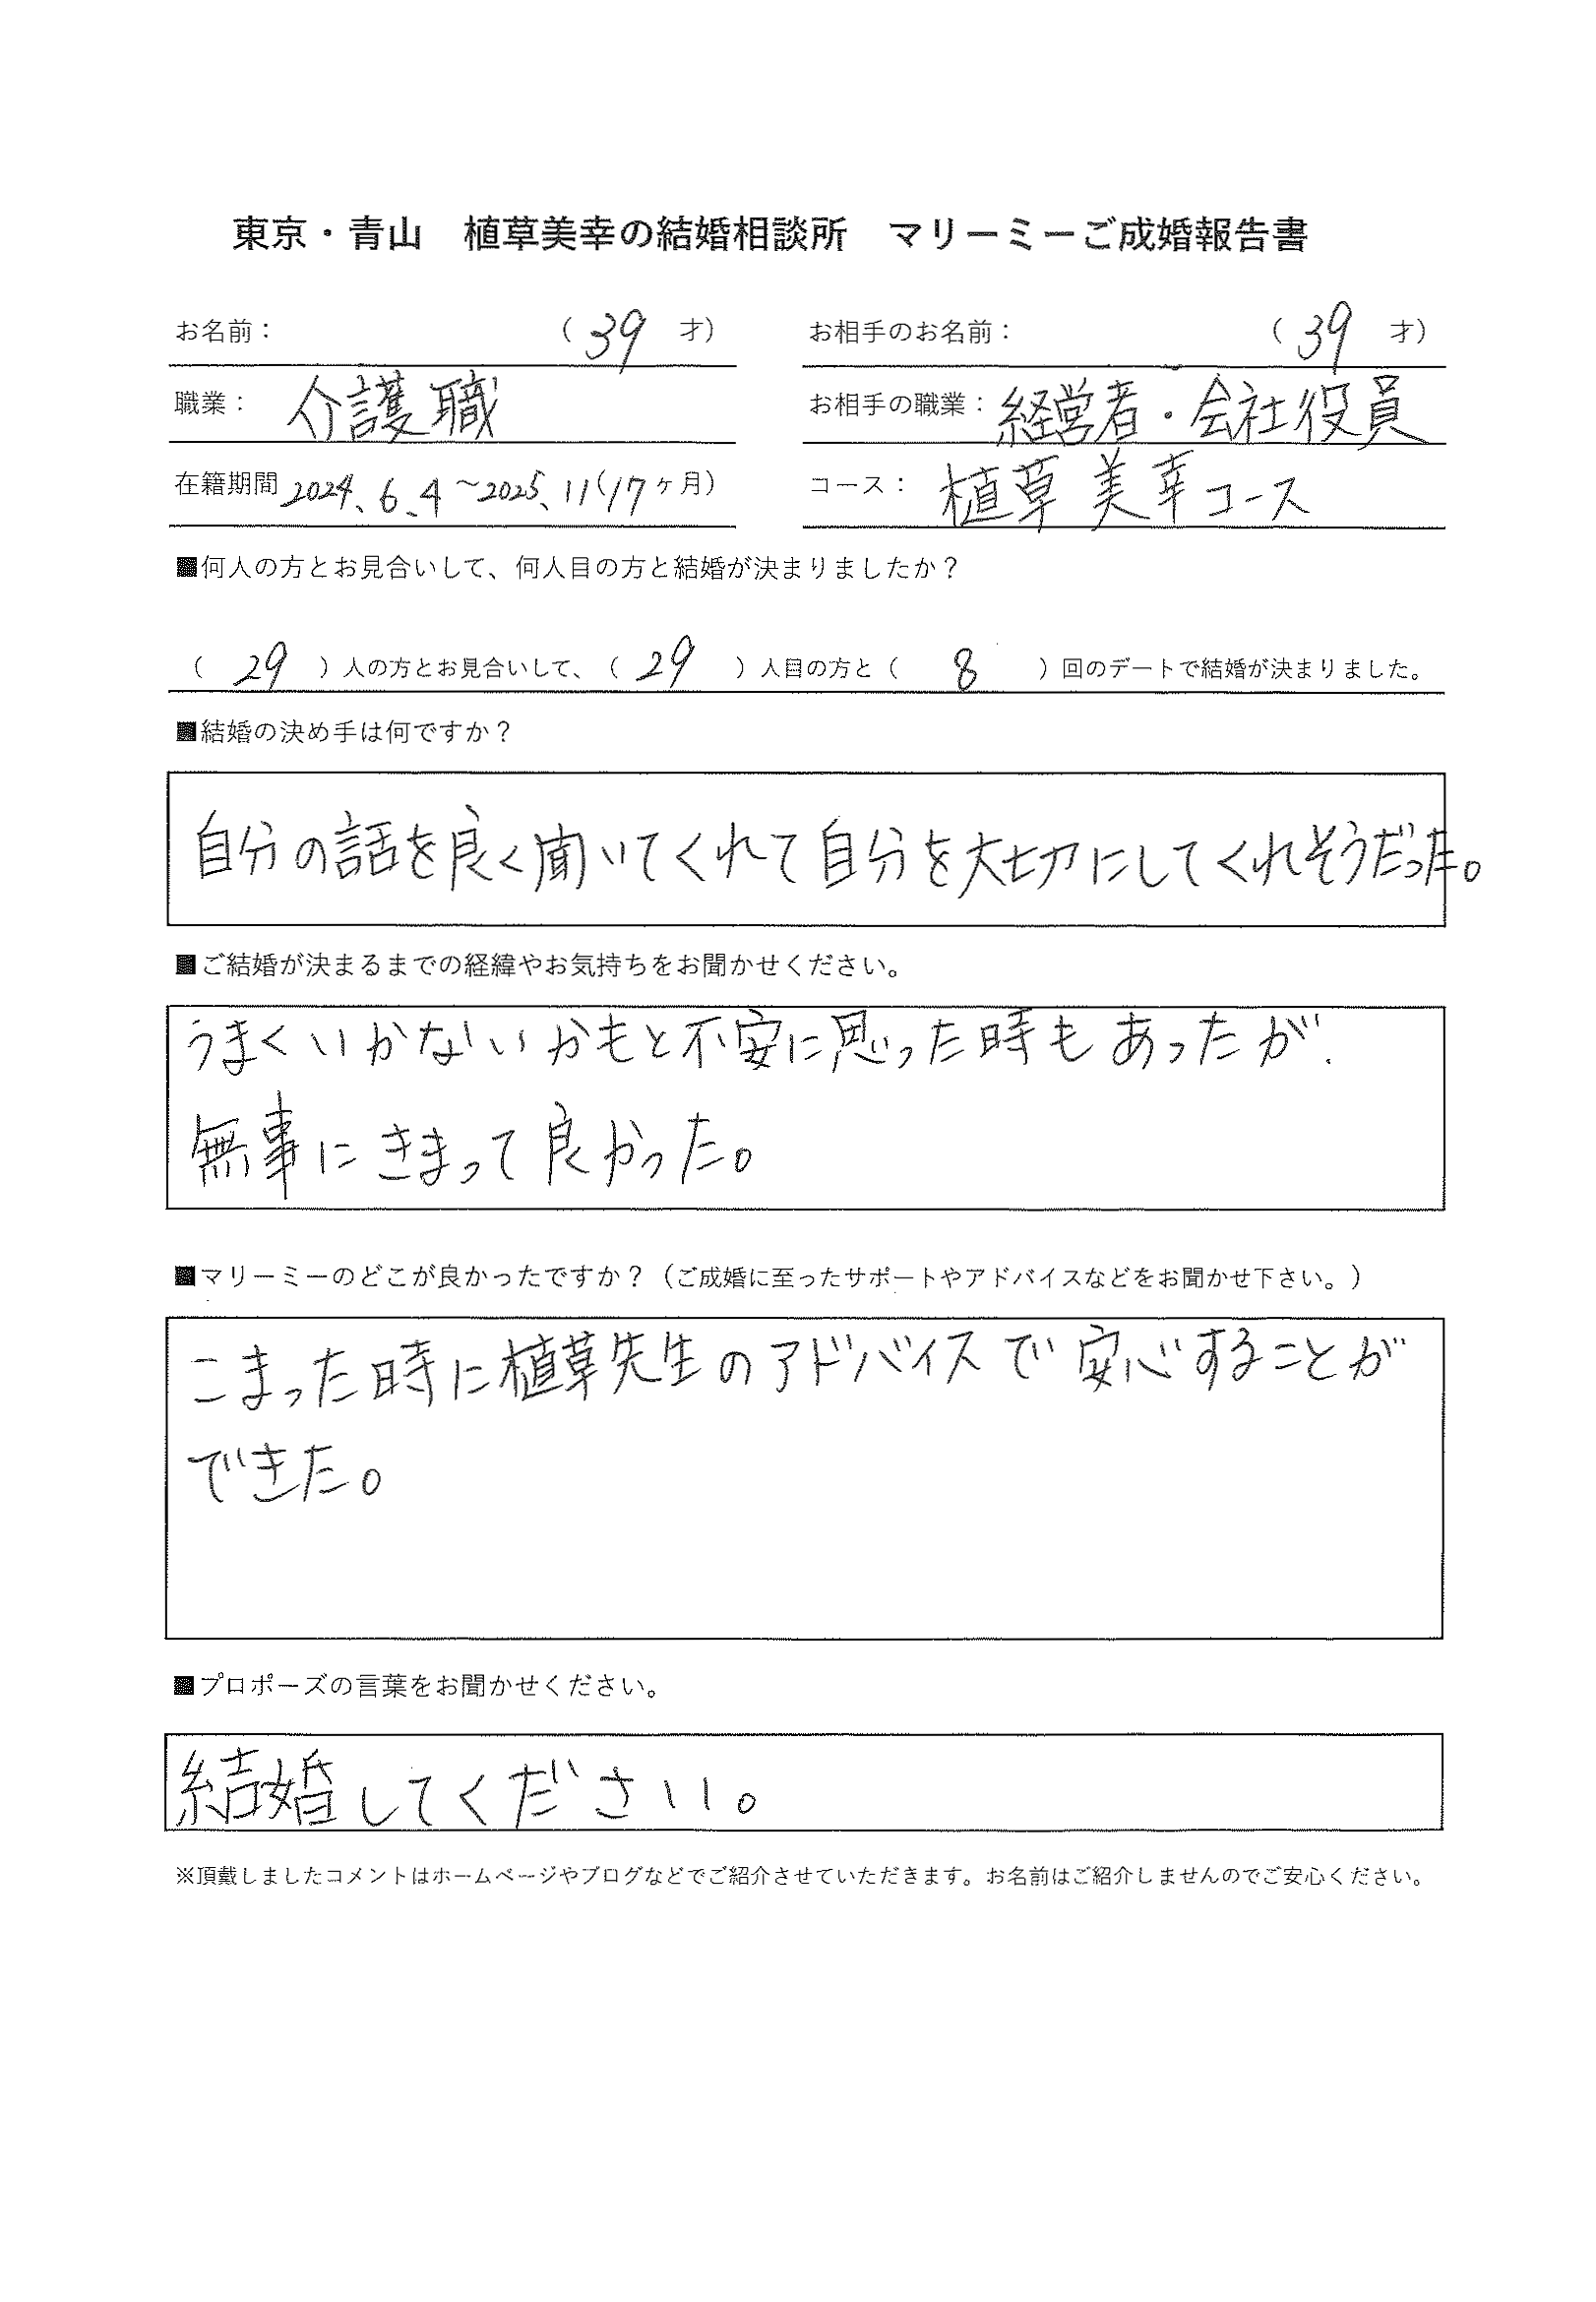 東京・青山　植草美幸の結婚相談所　マリーミーご成婚報告書
お名前：　（ 39 才）　お相手のお名前：　（ 39 才）
職業： 介護職　お相手の職業： 経営者・会社役員
在籍期間 2024、6、4 ～2025、11（17ヶ月）　コース： 植草美幸コース
■何人の方とお見合いして、何人目の方と結婚が決まりましたか？
（ 29 ）人の方とお見合いして、（ 29 ）人目の方と（ 8 ）回のデートで結婚が決まりました。
■結婚の決め手は何ですか？
自分の話を良く聞いてくれて自分を大切にしてくれそうだった。
■ご結婚が決まるまでの経緯やお気持ちをお聞かせください。
うまくいかないかもと不安に思った時もあったが、
無事にきまって良かった。
■マリーミーのどこが良かったですか？（ご成婚に至ったサポートやアドバイスなどをお聞かせ下さい。）
こまった時に植草先生のアドバイスで安心することが
できた。
■プロポーズの言葉をお聞かせください。
結婚してください。
※頂戴しましたコメントはホームページやブログなどでご紹介させていただきます。お名前はご紹介しませんのでご安心ください。